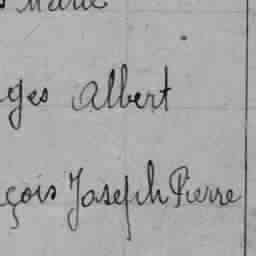 Marie
ges Albert
çois Joseph Pierre